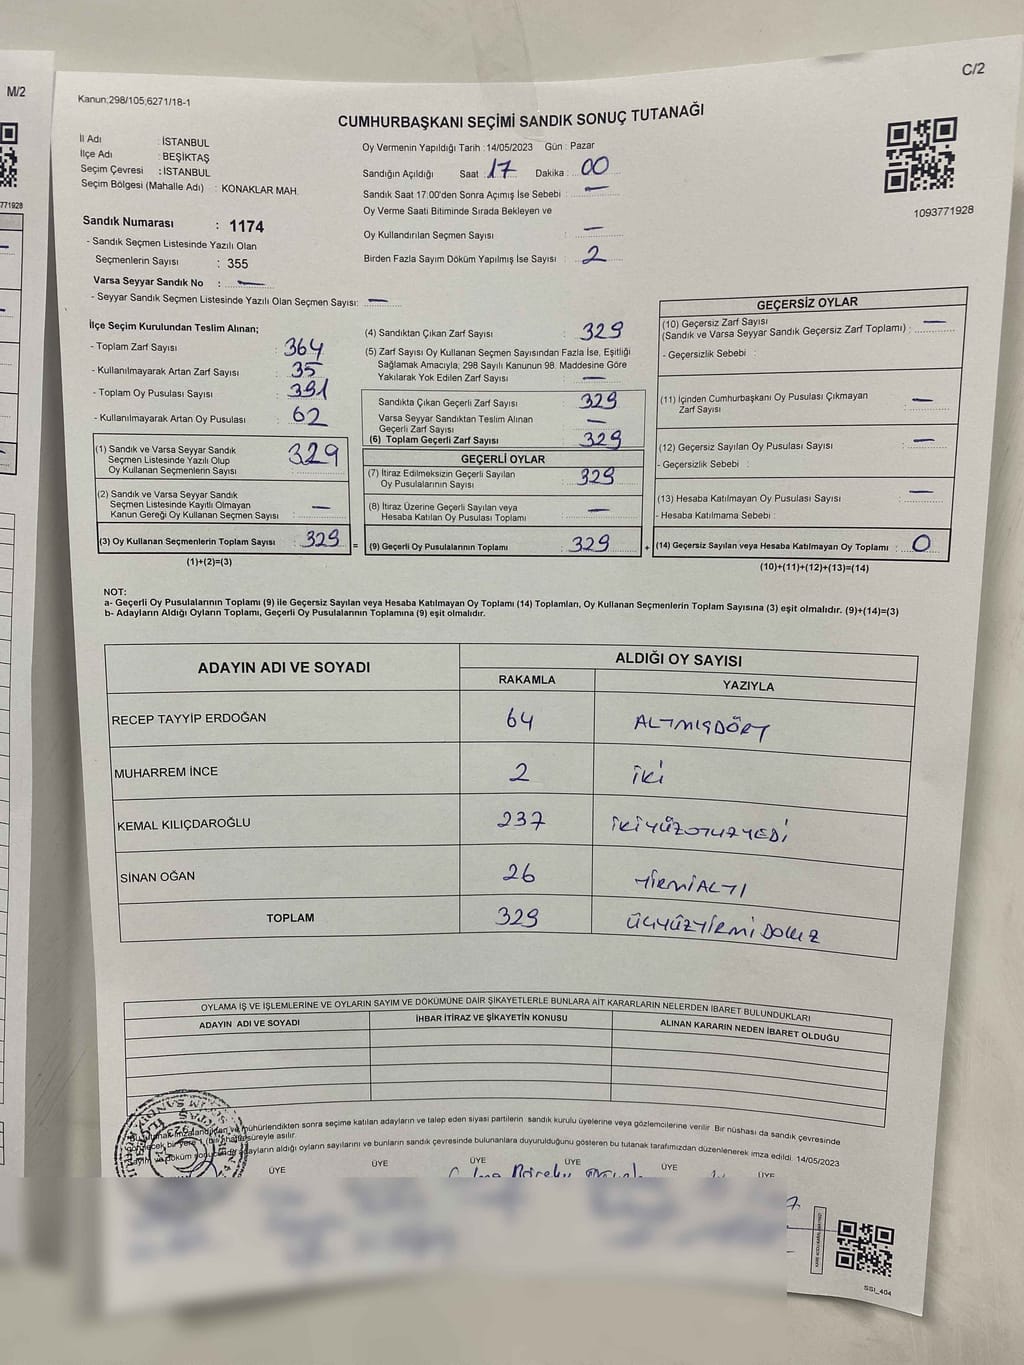 C/2
M/2
Kanun;298/105;6271/18-1
CUMHURBAŞKANI SEÇİMİ SANDIK SONUÇ TUTANAĞI
İl Adı : İSTANBUL
İlçe Adı : BEŞİKTAŞ
Seçim Çevresi : İSTANBUL
Seçim Bölgesi (Mahalle Adı) : KONAKLAR MAH.
Oy Vermenin Yapıldığı Tarih : 14/05/2023 Gün : Pazar
Sandığın Açıldığı Saat : 17 Dakika : 00
Sandık Saat 17:00'den Sonra Açımış İse Sebebi : —
Oy Verme Saati Bitiminde Sırada Bekleyen ve
Oy Kullandırılan Seçmen Sayısı : —
Birden Fazla Sayım Döküm Yapılmış İse Sayısı : 2
1093771928
771928
Sandık Numarası : 1174
- Sandık Seçmen Listesinde Yazılı Olan
Seçmenlerin Sayısı : 355
Varsa Seyyar Sandık No : —
- Seyyar Sandık Seçmen Listesinde Yazılı Olan Seçmen Sayısı: —
İlçe Seçim Kurulundan Teslim Alınan;
- Toplam Zarf Sayısı : 364
- Kullanılmayarak Artan Zarf Sayısı : 35
- Toplam Oy Pusulası Sayısı : 391
- Kullanılmayarak Artan Oy Pusulası : 62
(1) Sandık ve Varsa Seyyar Sandık
Seçmen Listesinde Yazılı Olup
Oy Kullanan Seçmenlerin Sayısı : 329
(2) Sandık ve Varsa Seyyar Sandık
Seçmen Listesinde Kayıtlı Olmayan
Kanun Gereği Oy Kullanan Seçmen Sayısı : —
(3) Oy Kullanan Seçmenlerin Toplam Sayısı : 329 =
(1)+(2)=(3)
(4) Sandıktan Çıkan Zarf Sayısı : 329
(5) Zarf Sayısı Oy Kullanan Seçmen Sayısından Fazla İse, Eşitliği
Sağlamak Amacıyla; 298 Sayılı Kanunun 98. Maddesine Göre
Yakılarak Yok Edilen Zarf Sayısı : —
Sandıkta Çıkan Geçerli Zarf Sayısı : 329
Varsa Seyyar Sandıktan Teslim Alınan
Geçerli Zarf Sayısı : —
(6) Toplam Geçerli Zarf Sayısı : 329
GEÇERLİ OYLAR
(7) İtiraz Edilmeksizin Geçerli Sayılan
Oy Pusulalarının Sayısı : 329
(8) İtiraz Üzerine Geçerli Sayılan veya
Hesaba Katılan Oy Pusulası Toplamı : —
(9) Geçerli Oy Pusulalarının Toplamı : 329 +
GEÇERSİZ OYLAR
(10) Geçersiz Zarf Sayısı
(Sandık ve Varsa Seyyar Sandık Geçersiz Zarf Toplamı) : —
- Geçersizlik Sebebi :
(11) İçinden Cumhurbaşkanı Oy Pusulası Çıkmayan
Zarf Sayısı : —
(12) Geçersiz Sayılan Oy Pusulası Sayısı : —
- Geçersizlik Sebebi :
(13) Hesaba Katılmayan Oy Pusulası Sayısı : —
- Hesaba Katılmama Sebebi :
(14) Geçersiz Sayılan veya Hesaba Katılmayan Oy Toplamı : 0
(10)+(11)+(12)+(13)=(14)
NOT:
a- Geçerli Oy Pusulalarının Toplamı (9) ile Geçersiz Sayılan veya Hesaba Katılmayan Oy Toplamı (14) Toplamları, Oy Kullanan Seçmenlerin Toplam Sayısına (3) eşit olmalıdır. (9)+(14)=(3)
b- Adayların Aldığı Oyların Toplamı, Geçerli Oy Pusulalarının Toplamına (9) eşit olmalıdır.
ADAYIN ADI VE SOYADI ALDIĞI OY SAYISI
RAKAMLA YAZIYLA
RECEP TAYYİP ERDOĞAN 64 ALTMIŞDÖRT
MUHARREM İNCE 2 İKİ
KEMAL KILIÇDAROĞLU 237 İKİYÜZOTUZYEDİ
SİNAN OĞAN 26 YİRMİALTI
TOPLAM 329 ÜÇYÜZYİRMİDOKUZ
OYLAMA İŞ VE İŞLEMLERİNE VE OYLARIN SAYIM VE DÖKÜMÜNE DAİR ŞİKAYETLERLE BUNLARA AİT KARARLARIN NELERDEN İBARET BULUNDUKLARI
ADAYIN ADI VE SOYADI İHBAR İTİRAZ VE ŞİKAYETİN KONUSU ALINAN KARARIN NEDEN İBARET OLDUĞU
mühürlendikten sonra seçime katılan adayların ve talep eden siyasi partilerin sandık kurulu üyelerine veya gözlemcilerine verilir. Bir nüshası da sandık çevresinde
süreyle asılır.
adayların aldığı oyların sayılarını ve bunların sandık çevresinde bulunanlara duyurulduğunu gösteren bu tutanak tarafımızdan düzenlenerek imza edildi. 14/05/2023
ÜYE ÜYE ÜYE ÜYE ÜYE ÜYE
SSI_404